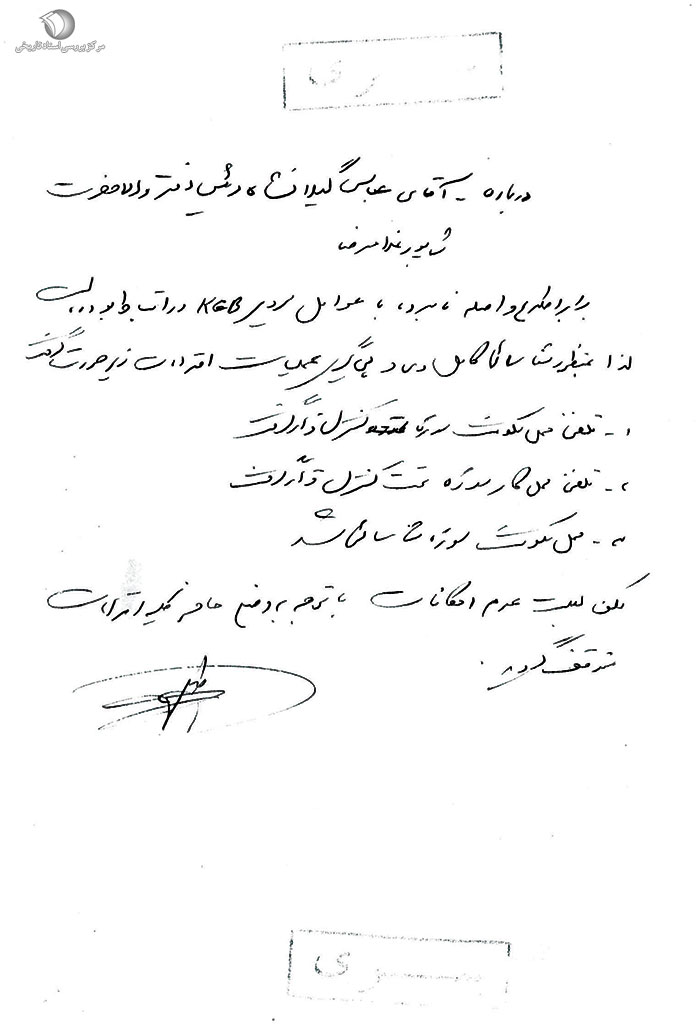 مرکز بررسی اسناد تاریخی
سری
درباره - آقای عباس گیلانشاه رئیس دفتر والاحضرت
شاپور غلامرضا
برابر اطلاع واصله نامبرده با عوامل سرویس KGB در
لذا بمنظور شناسائی کامل وی و پی‌گیری عملیات اقدامات زیر صورت گرفت
۱- تلفن محل سکونت سوژه تحت کنترل قرار گرفت
۲- تلفن محل کار سوژه تحت کنترل قرار گرفت
۳- محل سکونت سوژه شناسائی شد
لکن بعلت عدم امکانات با توجه به وضع حاضر کلیه اقدامات
متوقف گردید.
سری